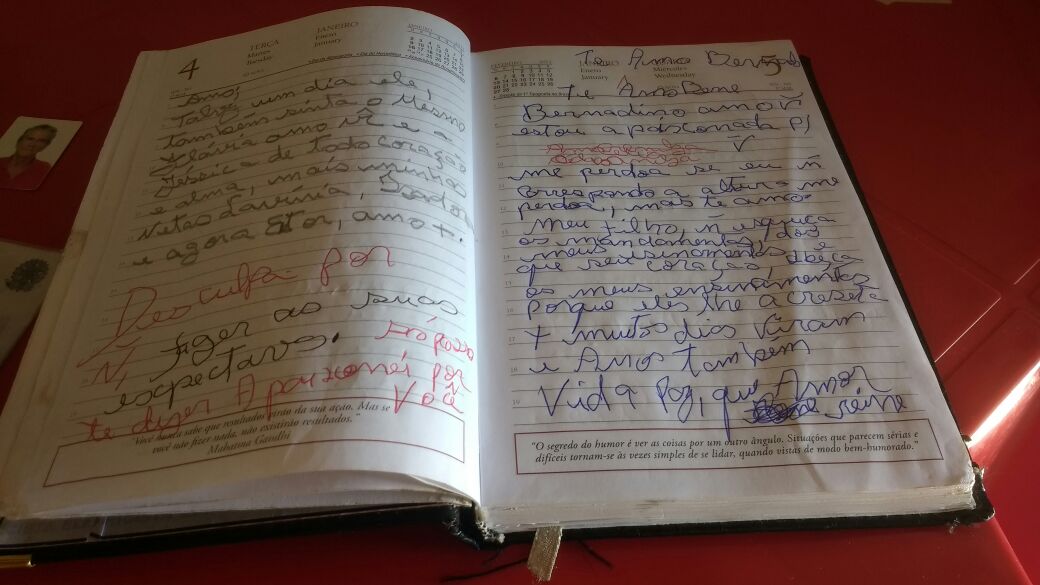 4
TERÇA
Martes
Tuesday
JANEIRO
Enero
January
Amo,
Talvez um dia ele,
também sinta o Mesmo
Flávia amo vc e a
Jéssica de todo coração
e alma, mais minhas
Netas Lavínia,
e agora amo +.
Desculpa por
Ñ, fazer as suas
espectavs. só posso
te dizer Apaixonei por
Você
"Você nunca sabe que resultados virão da sua ação. Mas se
você não fizer nada, não existirão resultados."
Mahatma Gandhi
FEVEREIRO
JANEIRO
Enero
January
Miércoles
Wednesday
5
Te Amo
Te Amo Bene
Bernadino amo V
estou apaixonada p/
V
me perdoa se eu ñ
correspondo a altura me
perdoa, mas te amo.
Meu filho, ñ esqueça
os mandamentos, dos
meus e
que seu coração,
os meus ensinamentos
porque eles lhe acresceta
+ muitos dias Viram
e Anos também
Vida Paz, que Amor
reine
"O segredo do humor é ver as coisas por um outro ângulo. Situações que parecem sérias e
difíceis tornam-se às vezes simples de se lidar, quando vistas de modo bem-humorado."